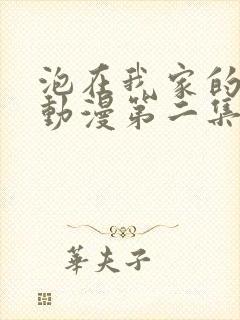 泡在我家的
動漫第二集
華夫子